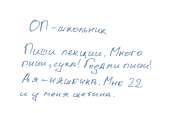 ОП-школьник
Пиши лекции. Много
пиши, сука! Годами пиши!
А я - няшечка. Мне 22
и у меня щетина.